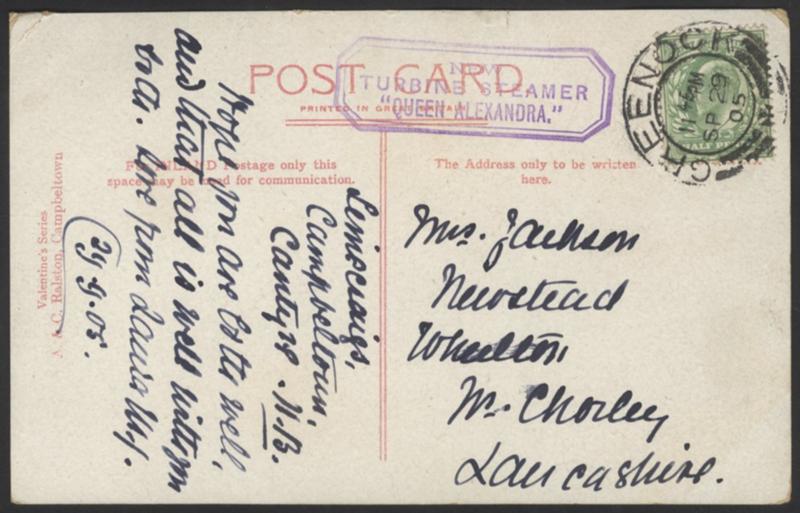 POST CARD.
PRINTED IN GREAT BRITAIN
NEW
TURBINE STEAMER
"QUEEN ALEXANDRA."
GREENOCK
11 45 AM
SP 29
05
HALF PE
FOR INLAND Postage only this
space may be used for communication.
The Address only to be written
here.
Valentine's Series
A & C. Ralston, Campbeltown
Limecraigs,
Campbeltown,
Cantyre. N.B.
Hope you are both well,
and that all is well with you
both. Love from Laura
29.9.05.
Mrs. Jackson
Newstead
Wheelton
Nr. Chorley
Lancashire.